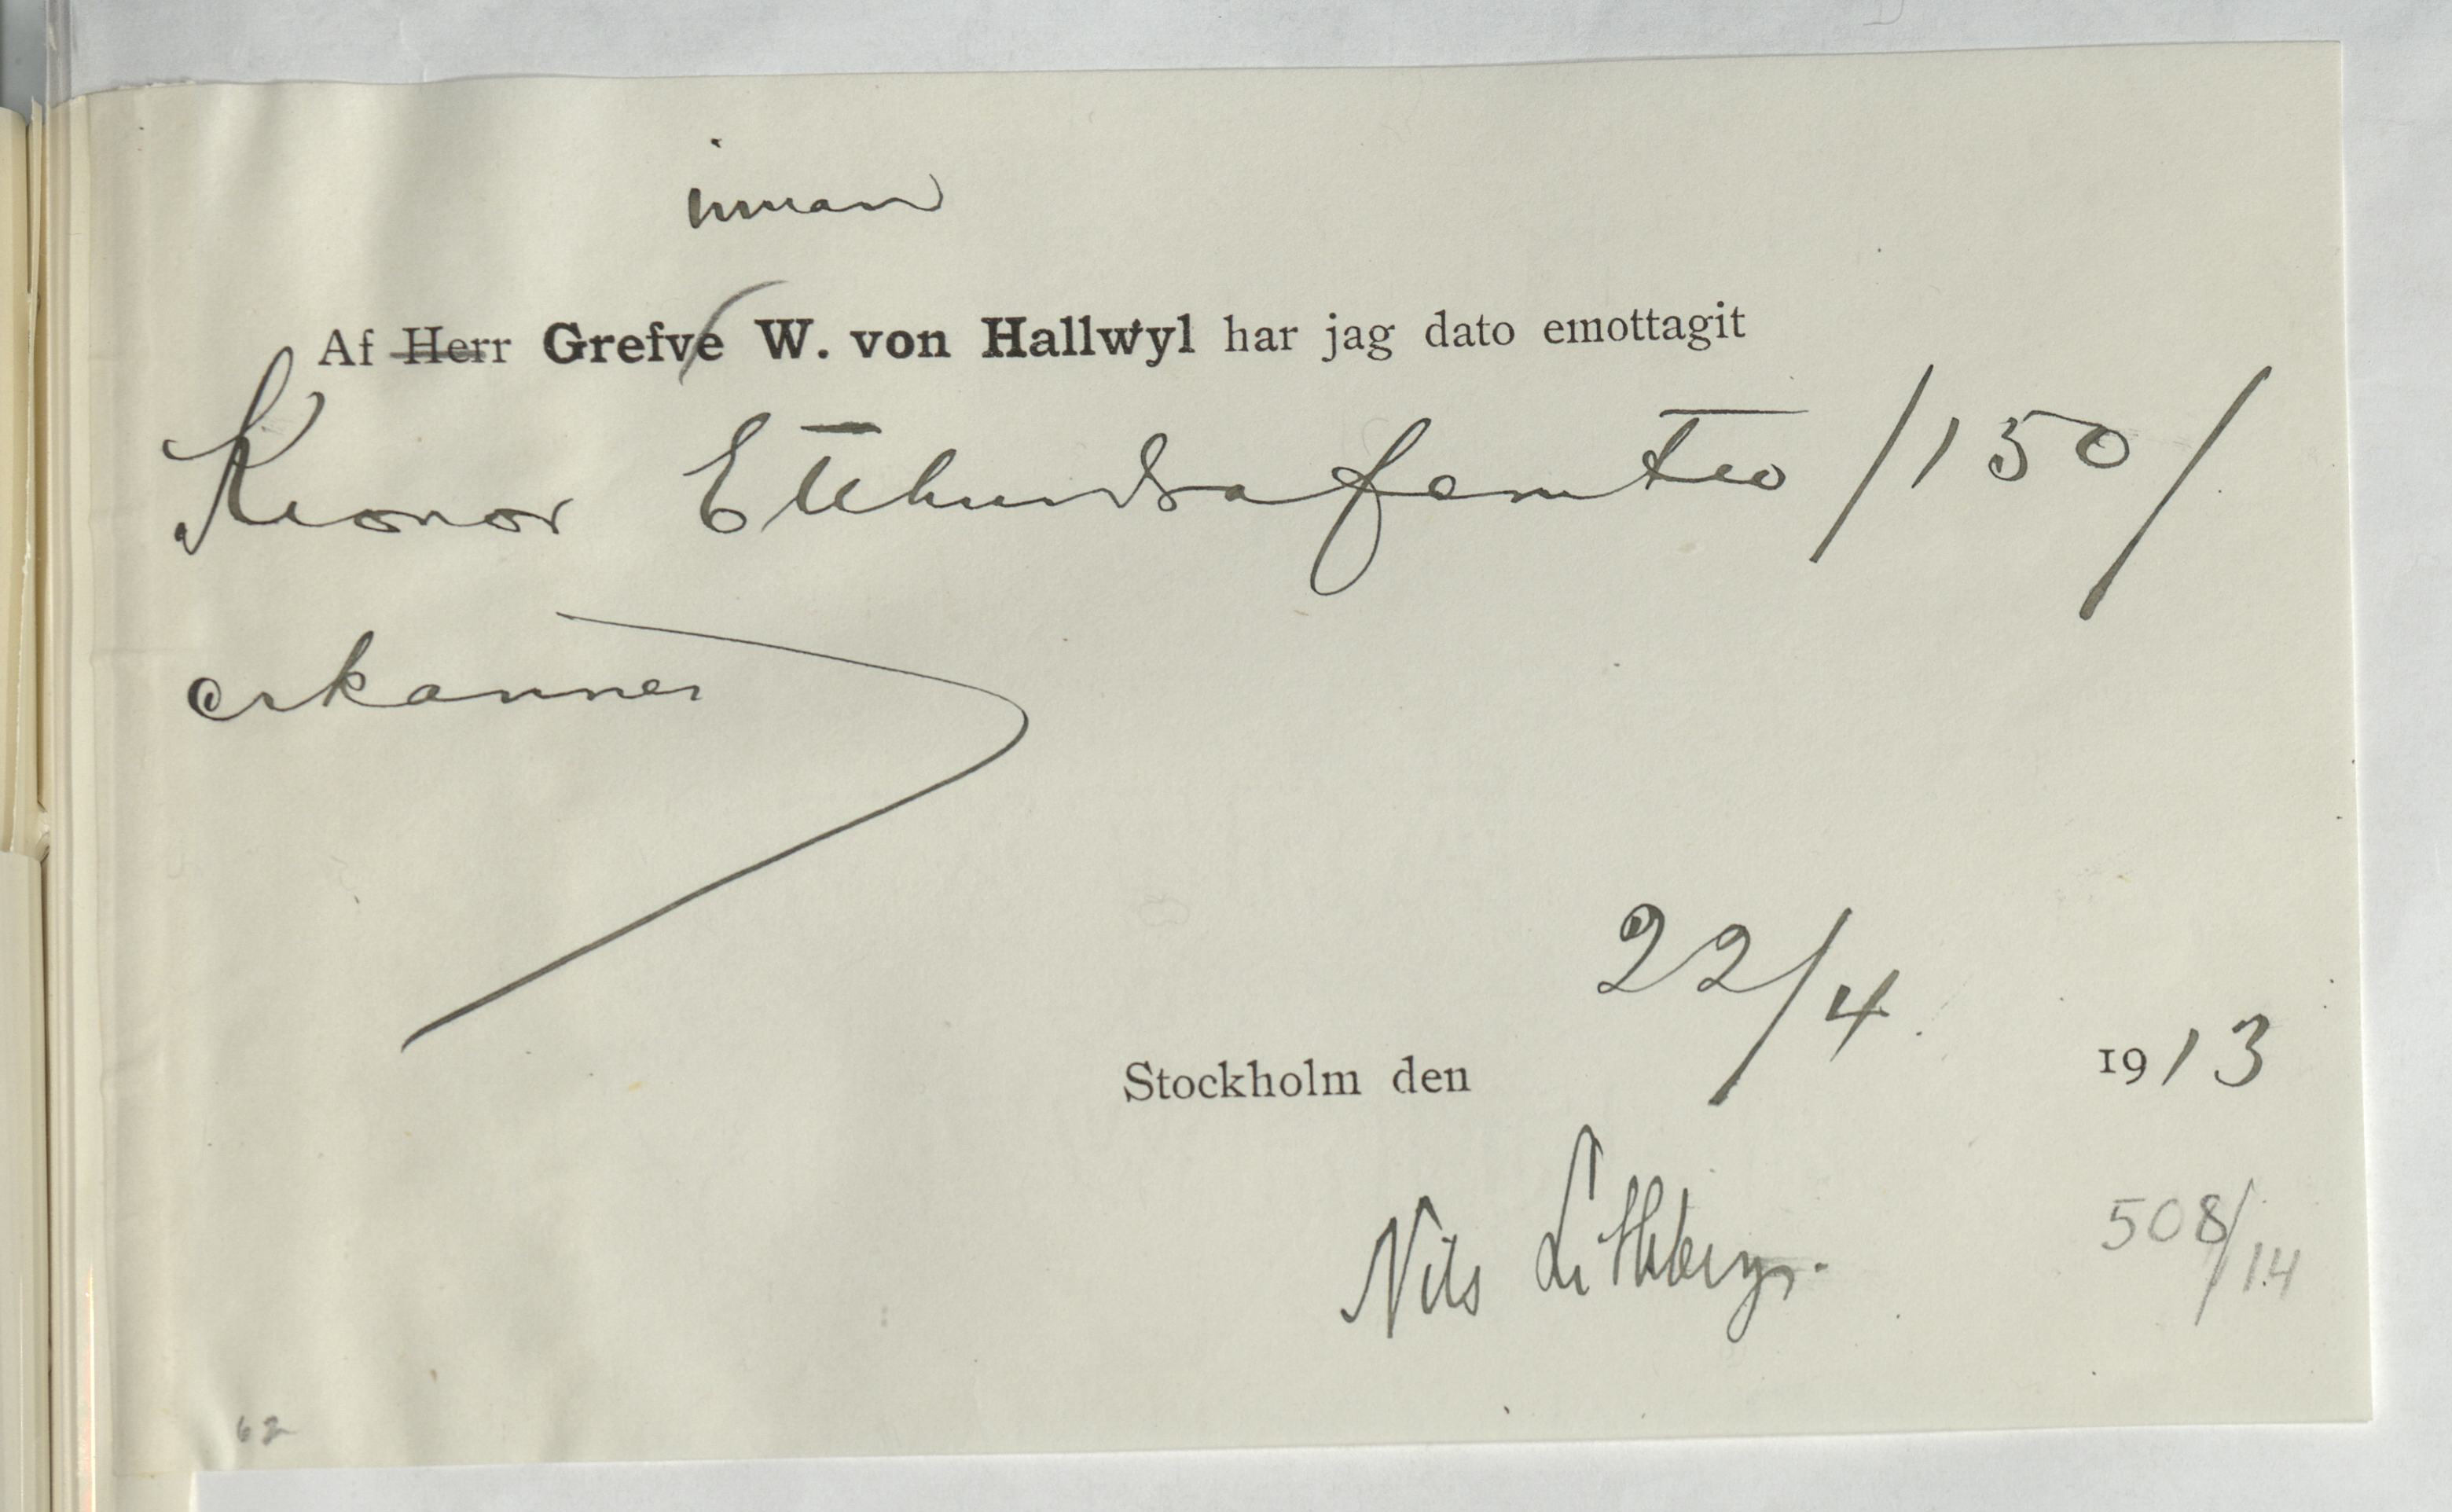 innan
Af Herr Grefve W. von Hallwyl har jag dato emottagit
Kronor Etthundrafemtio /150/
erkännes
22/4
Stockholm den 1913
Nils Lithberg.
508/14
62